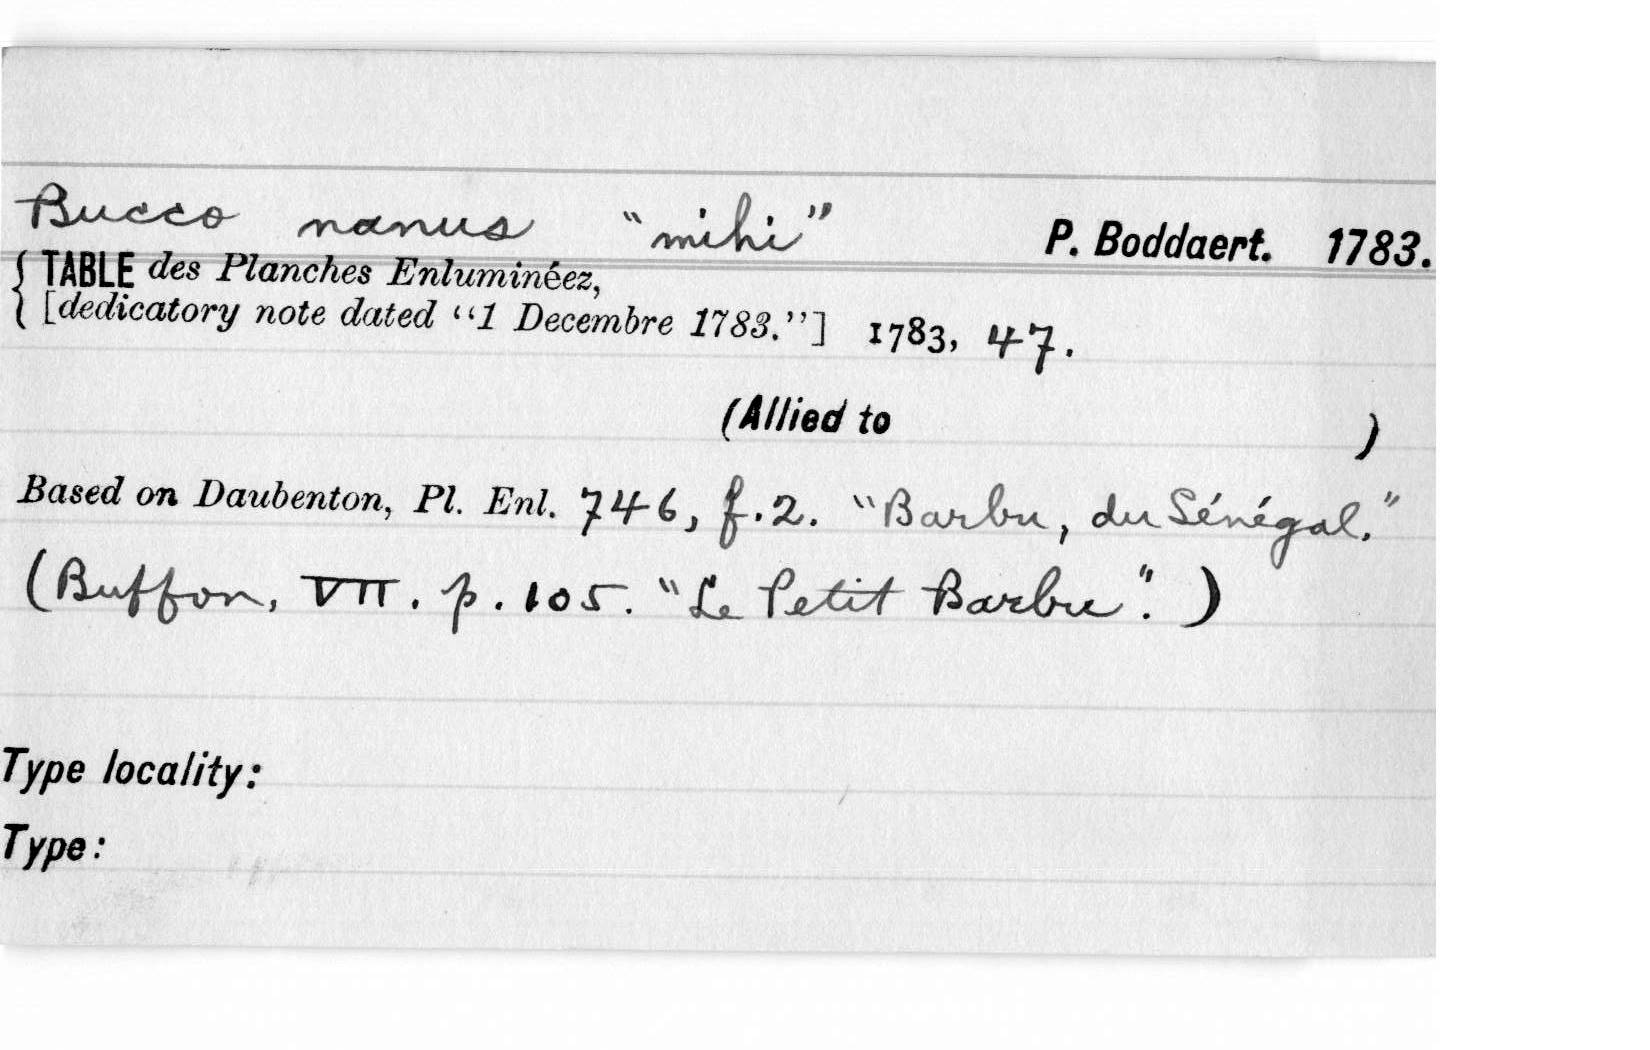 Bucco nanus "mihi" P. Boddaert. 1783.
{ TABLE des Planches Enluminéez,
{ [dedicatory note dated "1 Decembre 1783."] 1783, 47.
(Allied to )
Based on Daubenton, Pl. Enl. 746, f.2. "Barbu, du Sénégal."
(Buffon, VII. p. 105. "Le Petit Barbu". )
Type locality:
Type: